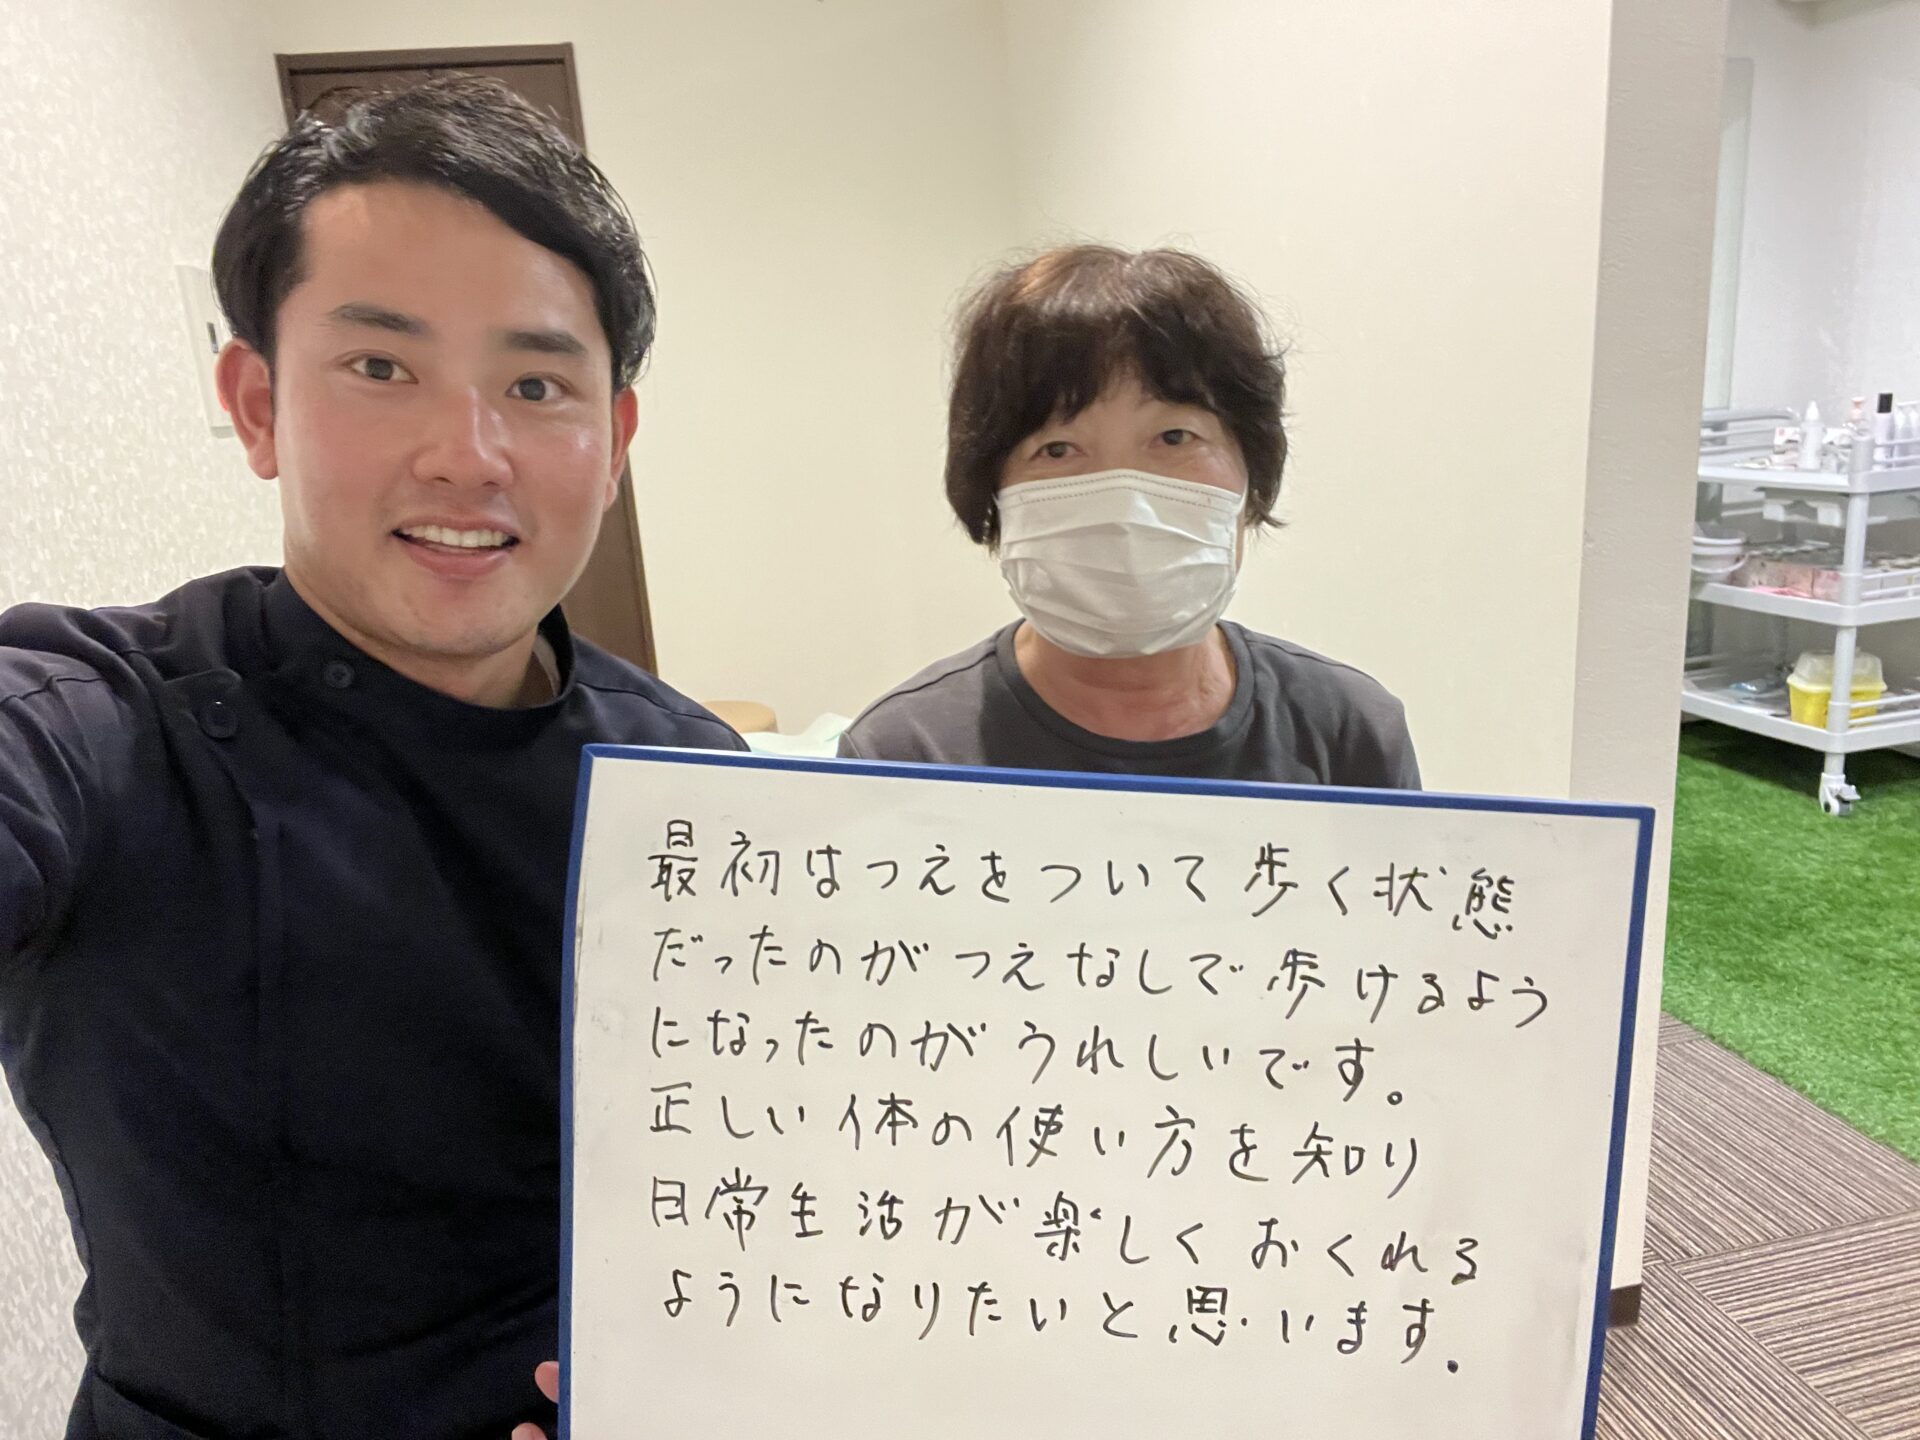 最初はつえをついて歩く状態
だったのがつえなしで歩けるよう
になったのがうれしいです。
正しい体の使い方を知り
日常生活が楽しくおくれる
ようになりたいと思います.